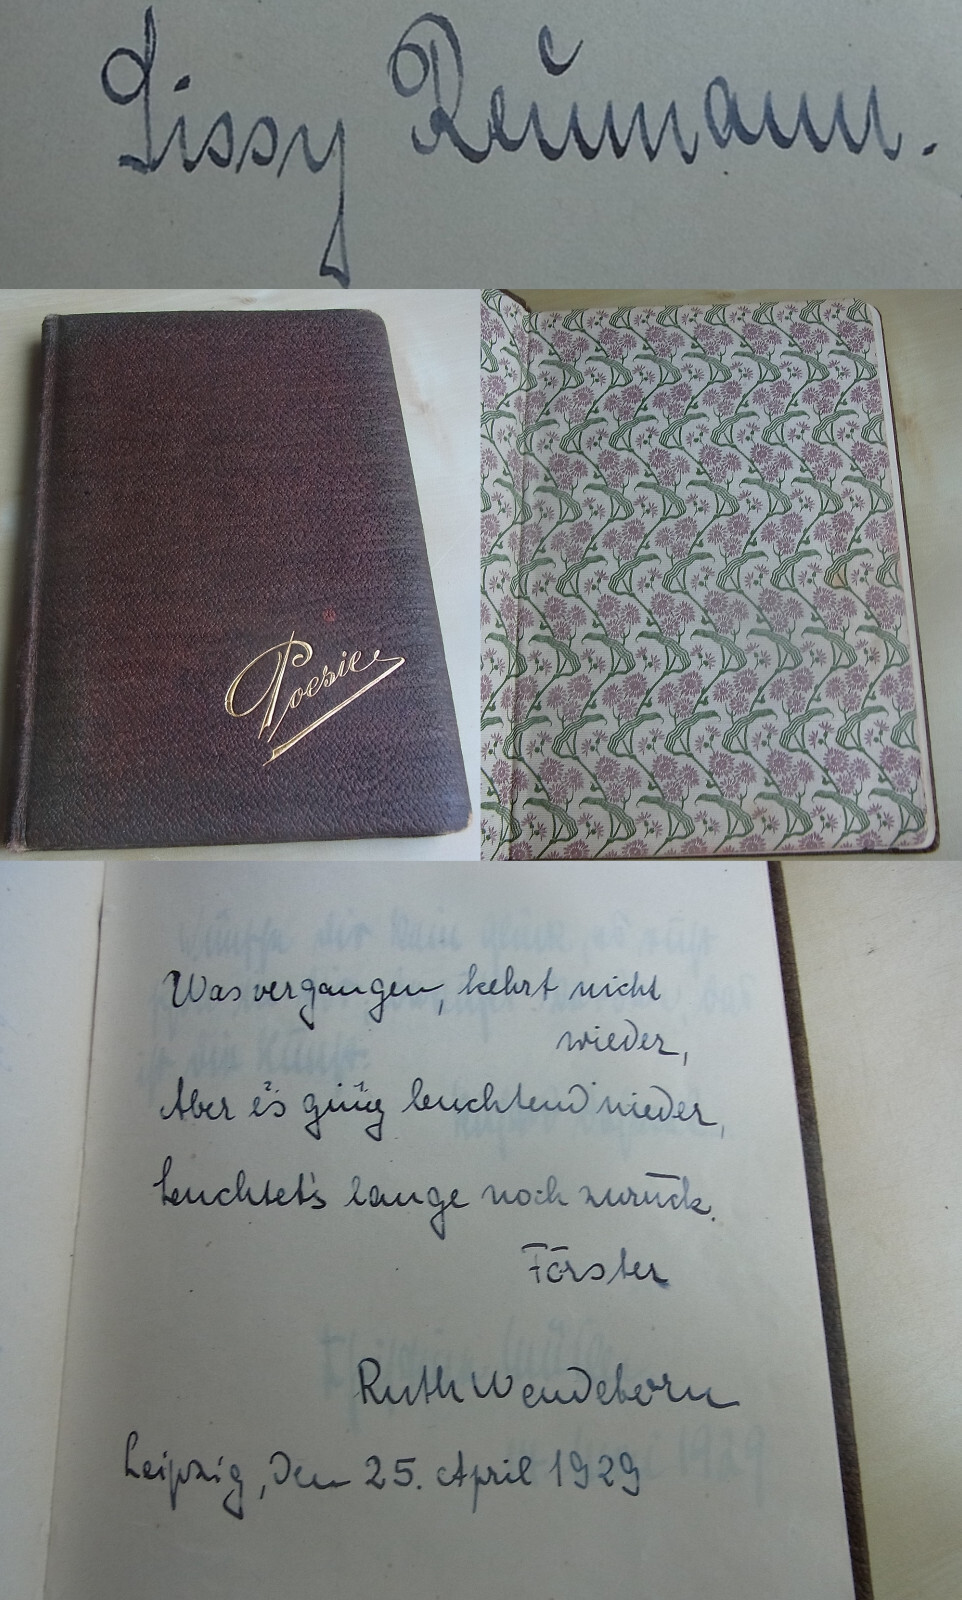 Lissy Reumann.
Poesie
Was vergangen, kehrt nicht
wieder,
Aber es ging leuchtend nieder,
leuchtet's lange noch zurück.
Förster
Ruth Wendeborn
Leipzig, den 25. April 1929